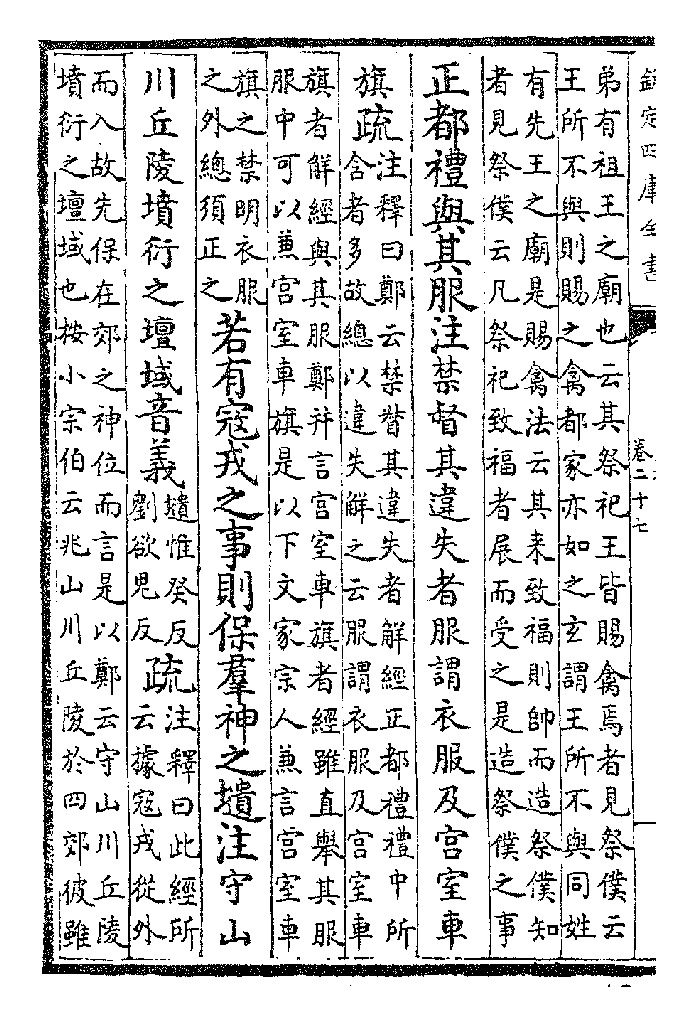 欽定四庫全書
卷二十七
弟有祖王之廟也云其祭祀王皆賜禽焉者見祭僕云
王所不與則賜之禽都家亦如之玄謂王所不與同姓
有先王之廟是賜禽法云其来致福則帥而造祭僕知
者見祭僕云凡祭祀致福者展而受之是造祭僕之事
正都禮與其服注禁督其違失者服謂衣服及宫室車
旗疏
注釋曰鄭云禁督其違失者解經正都禮禮中所
含者多故總以違失解之云服謂衣服及宫室車
旗者解經與其服鄭并言宫室車旗者經雖直舉其服
服中可以兼宫室車旗是以下文家宗人兼言宫室車
旗之禁明衣服
之外總須正之
若有寇戎之事則保羣神之壝注守山
川丘陵墳衍之壇域音義
壝惟癸反
劉欲鬼反
疏
注釋曰此經所
云據寇戎從外
而入故先保在郊之神位而言是以鄭云守山川丘陵
墳衍之壇域也按小宗伯云兆山川丘陵於四郊彼雖